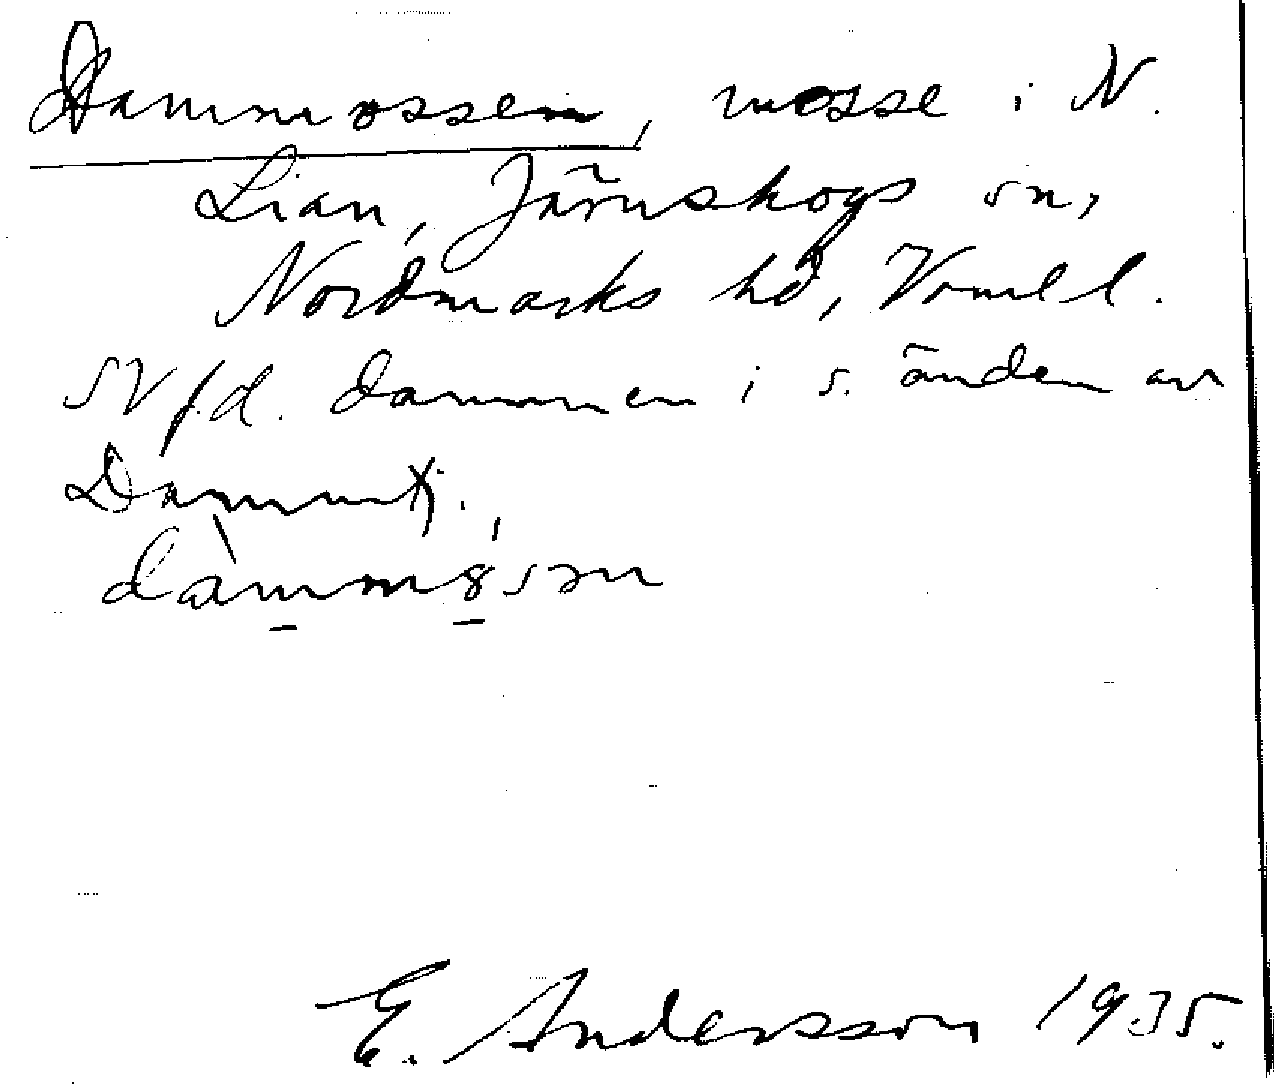 Dammossen, mosse i N.
Lian, Järnskogs sn,
Nordmarks hd, Vrml l.
SV f.d. dammen i s. änden av
Dammtj.,
E. Andersson 1935.